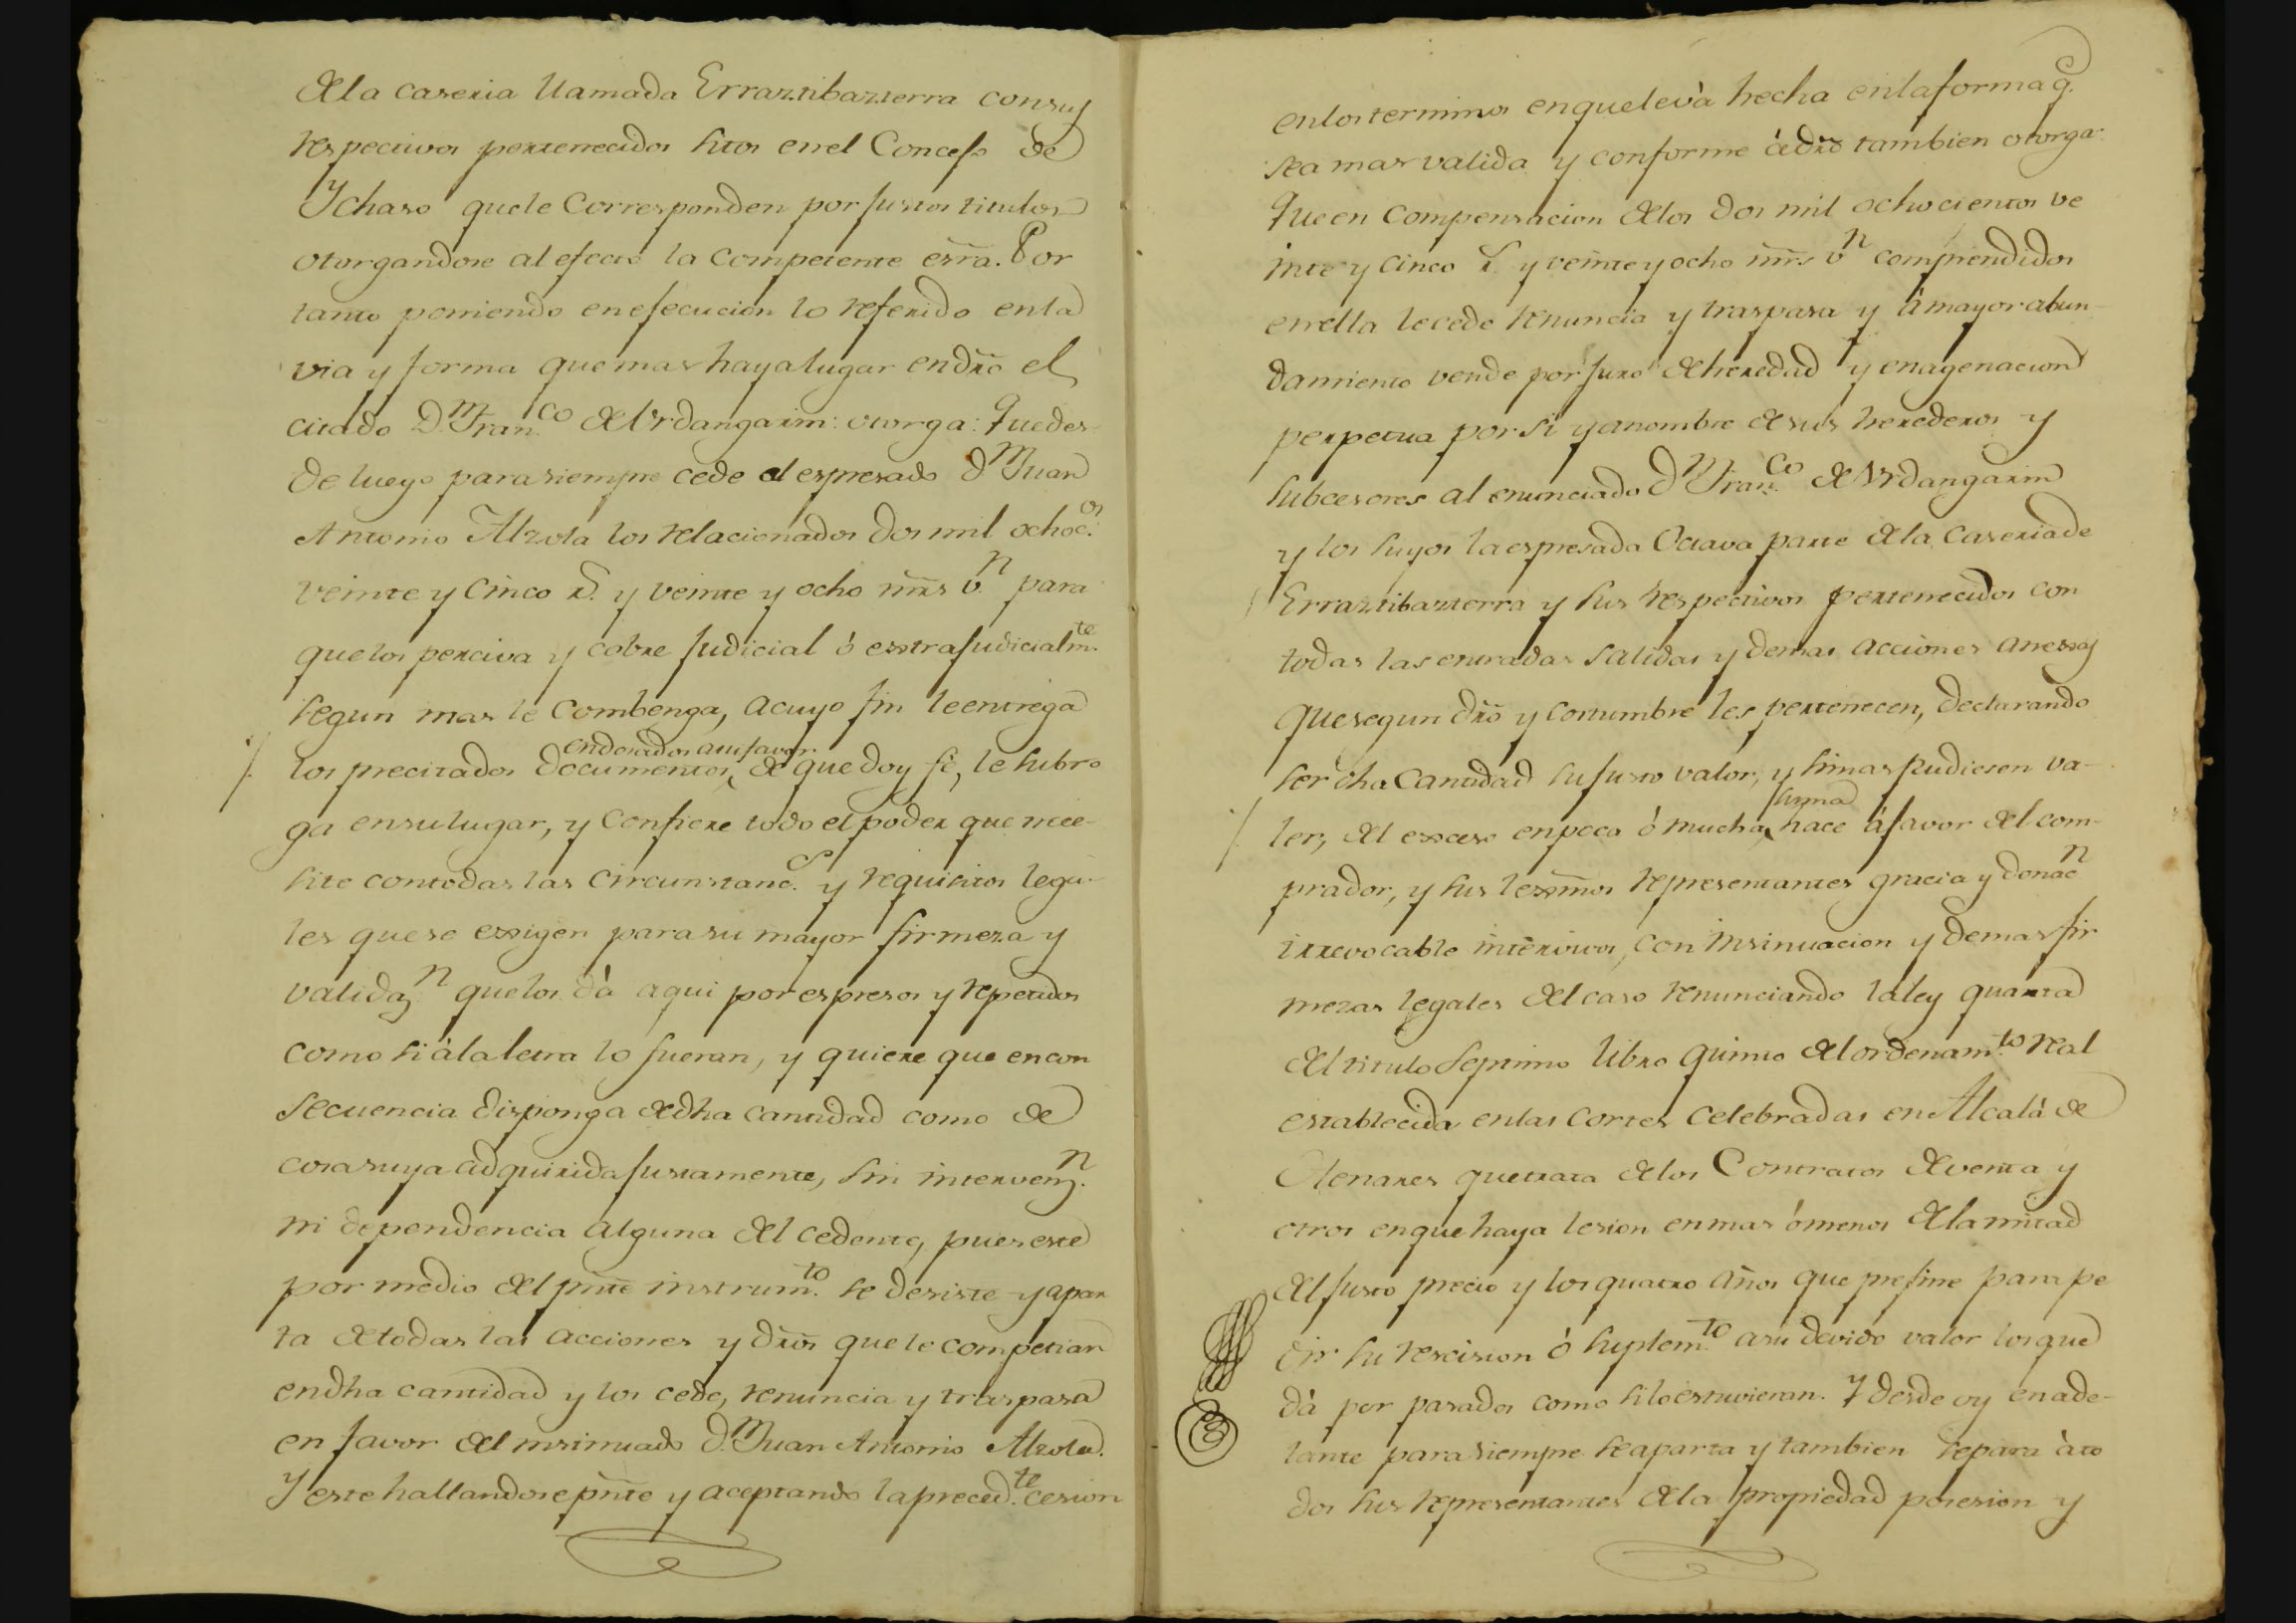 de la caseria llamada Erraztibazterra con sus
respectivos pertenecidos sitos en el Concejo de
Ychaso que le Corresponden por justos titulos
otorgandose al efecto la Competente esrra. Por
tanto poniendo en ejecucion lo referido en la
via y forma que mas haya lugar en dro el
citado D.n Fran.co de Urdangarin: otorga: Que des
de luego para siempre cede al espresado d.n Juan
Antonio Alzola los relacionados dos mil ochoc.os
veinte y cinco r.s y veinte y ocho mrs v.n para
que los perciva y cobre judicial ó exstrajudicialm.te
segun mas le Combenga, a cuyo fin le entrega
endosados a su favor
los precitados documentos, de que doy fé, le subro
ga en su lugar, y Confiere todo el poder que nece-
site con todas las Circunstanc.s y requisitos lega-
les que se exsigen para su mayor firmeza y
validaz.n que los dá aqui por espresos y repetidos
como si á la letra lo fueran, y quiere que en con
secuencia disponga de dha cantidad como de
cosa suya adquirida justamente, sin intervenz.n
ni dependencia alguna del cedente, pues este
por medio del pñte instrum.to se desiste y apar
ta de todas las acciones y dros que le competian
en dha cantidad y los cede, renuncia y traspasa
en favor del insinuado D.n Juan Antonio Alzola.
Y este hallandose pñte y aceptando la preced.te cesion
en los terminos en que le và hecha en la forma q.e
sea mas valida y conforme á dro tambien otorga:
Que en compensacion de los dos mil ochocientos ve
inte y cinco r.s y veinte y ocho mrs v.n comprendidos
en ella le cede renuncia y traspasa y á mayor abun-
damiento vende por juro de heredad y enagenacion
perpetua por si y a nombre de sus herederos y
subcesores al enunciado D.n Fran.co de Urdangarin
y los suyos la espresada Octava parte de la Caseria de
Erraztibazterra y sus respectivos pertenecidos con
todas las entradas salidas y demas acciones anexsas
que segun dro y costumbre les pertenecen, Declarando
ser dha Cantidad su justo valor, y si mas pudiesen va-
suma
ler, del exsceso en poca ó mucha hace á favor del com-
prador, y sus lexsmos representantes gracia y donac.n
irrevocable intervivos, con insinuacion y demas fir
mezas legales del caso renunciando la ley quarta
del titulo septimo libro quinto del ordenam.to real
establecida en las Cortes Celebradas en Alcalá de
Henares que trata de los Contratos de venta y
otros en que haya lesion en mas ó menos de la mitad
del justo precio y los quatro años que prefine para pe
dir su rescision ó suplem.to a su devido valor los que
dá por pasados como si lo estuvieran. Y desde oy en ade-
lante para siempre se aparta y tambien separa á to
dos sus representantes de la propiedad posesion y